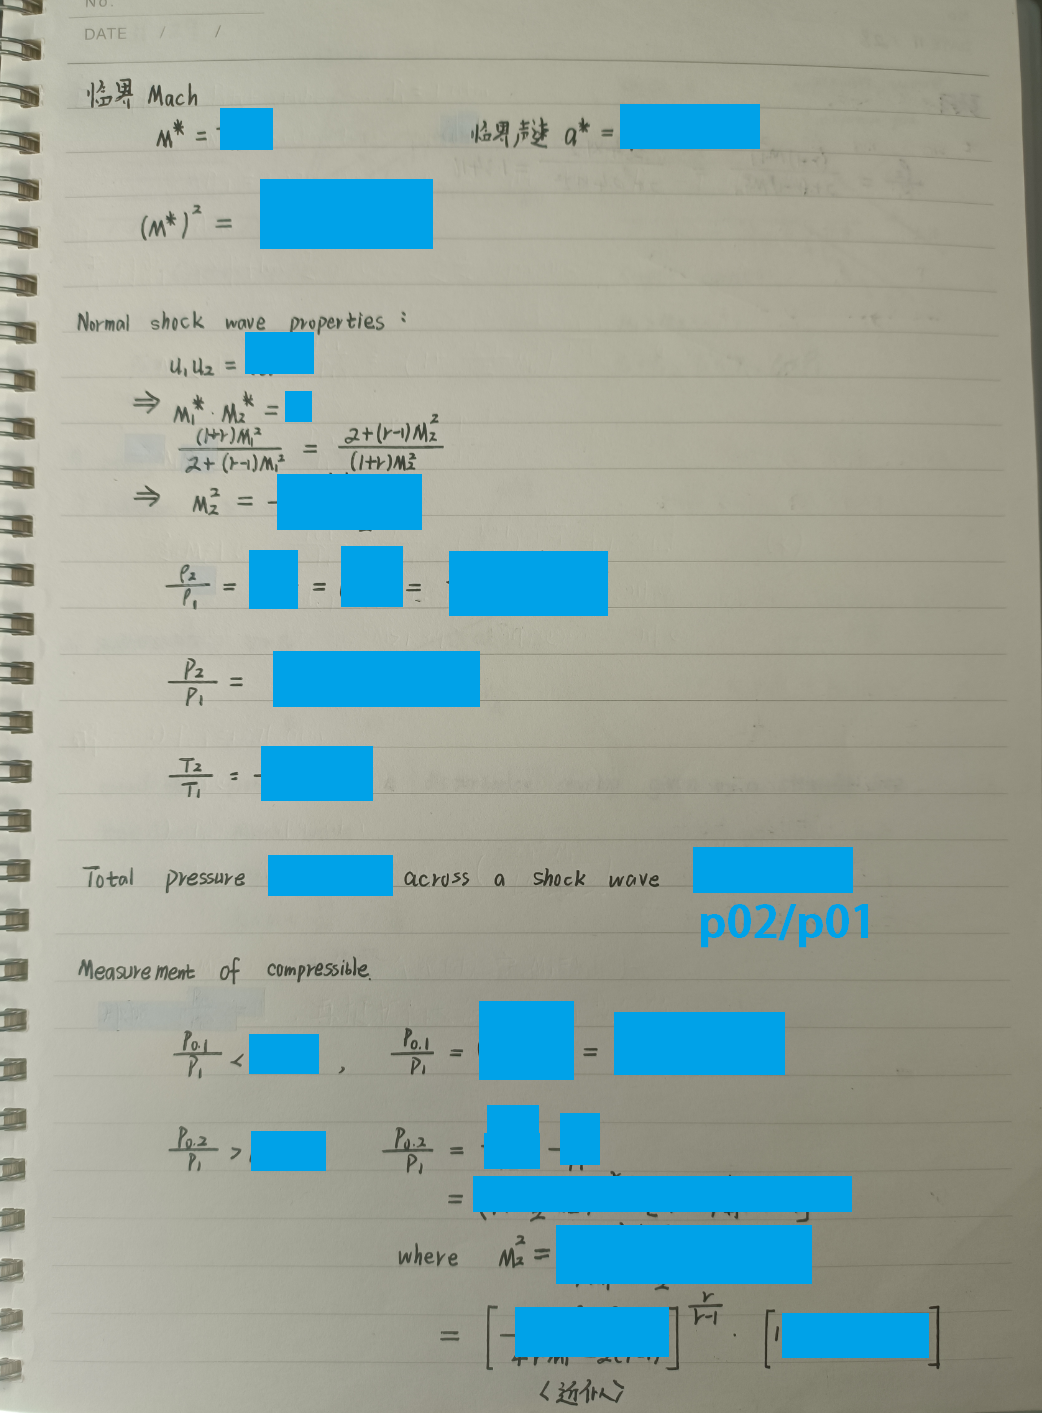 No.
DATE / /
临界 Mach
M* = 临界声速 a* =
(M*)² =
Normal shock wave properties :
u₁u₂ =
⇒ M₁* · M₂* =
(1+r)M₁² / 2+(r-1)M₁² = 2+(r-1)M₂² / (1+r)M₂²
⇒ M₂² =
ρ₂/ρ₁ = = =
P₂/P₁ =
T₂/T₁ =
Total pressure across a shock wave
p02/p01
Measurement of compressible.
P₀.₁/P₁ < , P₀.₁/P₁ = =
P₀.₂/P₁ > P₀.₂/P₁ =
=
where M₂² =
= [ ]^(r/(r-1)) · [1 ]